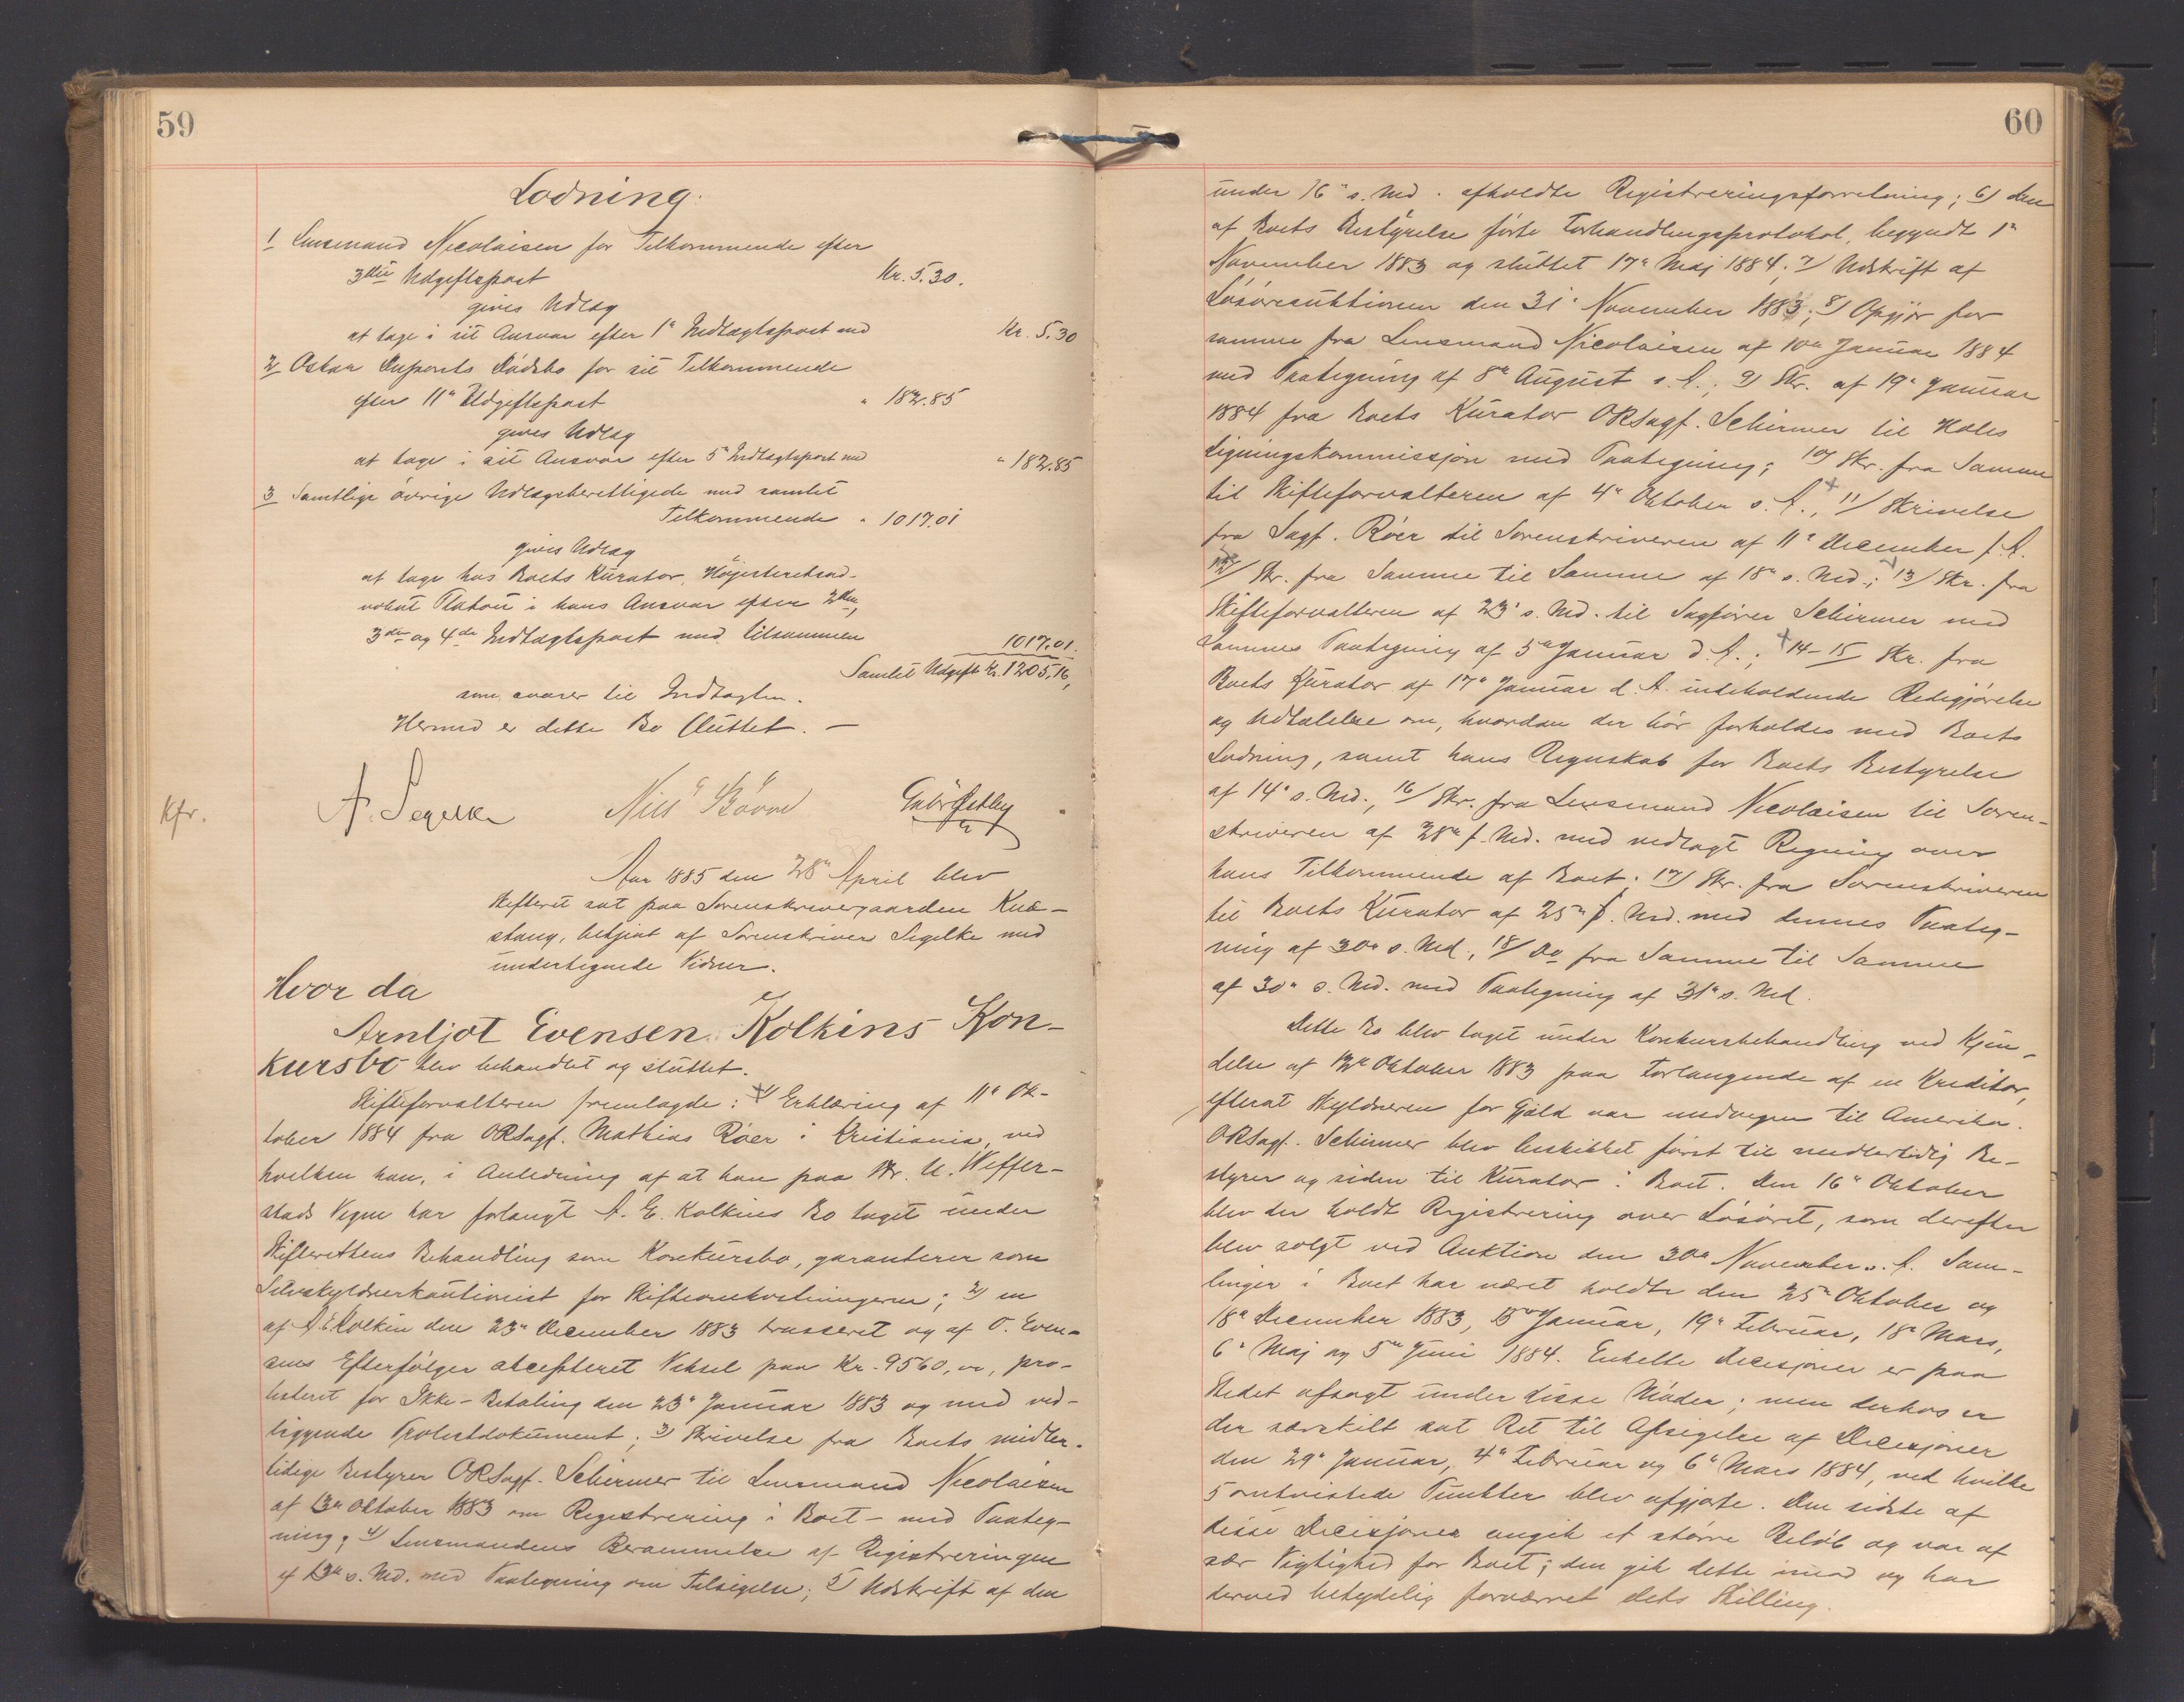 59
Lodning.
1 Lensmand Nicolaisen for Tilkommende efter
3die Udgiftspost Kr. 5.30.
gives Udlæg
at tage i sit Ansvar efter 1ste Indtægtspost med Kr. 5.30
2 Oskar Duponts Dødsbo for sit Tilkommende
efter 11te Udgiftspost " 182.85
gives Udlæg
at tage i sit Ansvar efter 5te Indtægtspost med " 182.85
3 Samtlige øvrige Udlægsberettigede med samlet
Tilkommende " 1017.01
gives Udlæg
at tage hos Boets Kurator, Højesteretsad-
vokat Platou i hans Ansvar efter 2den,
3die og 4de Indtægtspost med tilsammen 1017.01.
Samlet Udgift Kr. 1205.16,
som svarer til Indtægten.
Hermed er dette Bo sluttet. —
Kfr.
A. Segelke Nils Bovre Gabr Østby
Aar 1885 den 28de April blev
Skifteret sat paa Sorenskrivergaarden Knæ-
stang, betjent af Sorenskriver Segelke med
undertegnede Vidner.
Hvor da
Arnljot Evensen Kolkins Kon-
kursbo blev behandlet og sluttet.
Skifteforvalteren fremlagde: 1) Erklæring af 11te Ok-
tober 1884 fra ORSagf. Mathias Röer i Kristiania, ved
hvilken han, i Anledning af at han paa Hr. U. Weffer-
stads Vegne har forlangt A. E. Kolkins Bo taget under
Skifterettens Behandling som Konkursbo, garanterer som
Selvskyldnerkautionist for Skifteomkostningerne; 2) en
af A E Kolkin den 23de December 1883 trasseret og af O. Even-
sens Efterfølger akcepteret Veksel paa Kr. 9560,oo, pro-
testeret for Ikke-Betaling den 23de Januar 1883 og med ved-
liggende Protestdokument; 3) Skrivelse fra Boets midler-
tidige Bestyrer ORSagf. Schirmer til Lensmand Nicolaisen
af 13de Oktober 1883 om Registrering i Boet – med Paateg-
ning; 4) Lensmandens Berammelse af Registreringen
af 13de s. Md. med Paategning om Tilsigelse; 5) Udskrift af den
60
under 16de s. Md. afholdte Registreringsforretning; 6) den
af Boets Bestyrelse førte Forhandlingsprotokol, begyndt 1ste
November 1883 og sluttet 17de Maj 1884; 7) Udskrift af
Løsøreauktionen den 31te November 1883; 8) Opgjør for
samme fra Lensmand Nicolaisen af 10de Januar 1884
med Paategning af 8de August s. A.; 9) Skr. af 19de Januar
1884 fra Boets Kurator ORSagf. Schirmer til Hols
Ligningskommissjon med Paategning; 10) Skr. fra Samme
til Skifteforvalteren af 4de Oktober s. A.; 11) Skrivelse
fra Sagf. Röer til Sorenskriveren af 11te December f. A.
12) Skr. fra Samme til Samme af 18de s. Md.; 13) Skr. fra
Skifteforvalteren af 23de s. Md. til Sagfører Schirmer med
Sammes Paategning af 5te Januar d. A.; 14–15 Skr. fra
Boets Kurator af 17de Januar d. A. indeholdende Redegjørelse
og Udtalelse om, hvordan der bør forholdes med Boets
Lodning, samt hans Regnskab for Boets Bestyrelse
af 14de s. Md., 16) Skr. fra Lensmand Nicolaisen til Soren-
skriveren af 28de f. Md. med vedlagt Regning over
hans Tilkommende af Boet; 17) Skr. fra Sorenskriveren
til Boets Kurator af 25de f. Md. med dennes Paateg-
ning af 30te s. Md., 18) Do fra Samme til Samme
af 30te s. Md. med Paategning af 31te s. Md.
Dette Bo blev taget under Konkursbehandling ved Kjen-
delse af 12te Oktober 1883 paa Forlangende af en Kreditor,
efterat Skyldneren for Gjæld var undvegen til Amerika.
ORSagf. Schirmer blev beskikket først til midlertidig Be-
styrer og siden til Kurator i Boet. Den 16de Oktober
blev der holdt Registrering over Løsøret, som derefter
blev solgt ved Auktion den 30te November s. A. Sam-
linger i Boet har været holdte den 25de Oktober og
18de December 1883, 15de Januar, 19de Februar, 18de Mars,
6te Maj og 5te Juni 1884. Enkelte Decisjoner er paa
Stedet afsagt under disse Møder; men derhos er
der særskilt sat Ret til Afsigelse af Decisjoner
den 29de Januar, 4de Februar og 6te Mars 1884, ved hvilke
5 omtvistede Punkter blev afgjorte. Den sidste af
disse Decisjoner angik et større Beløb og var af
stor Vigtighed for Boet; den gik dette imod og har
derved betydelig forværret dets Stilling.